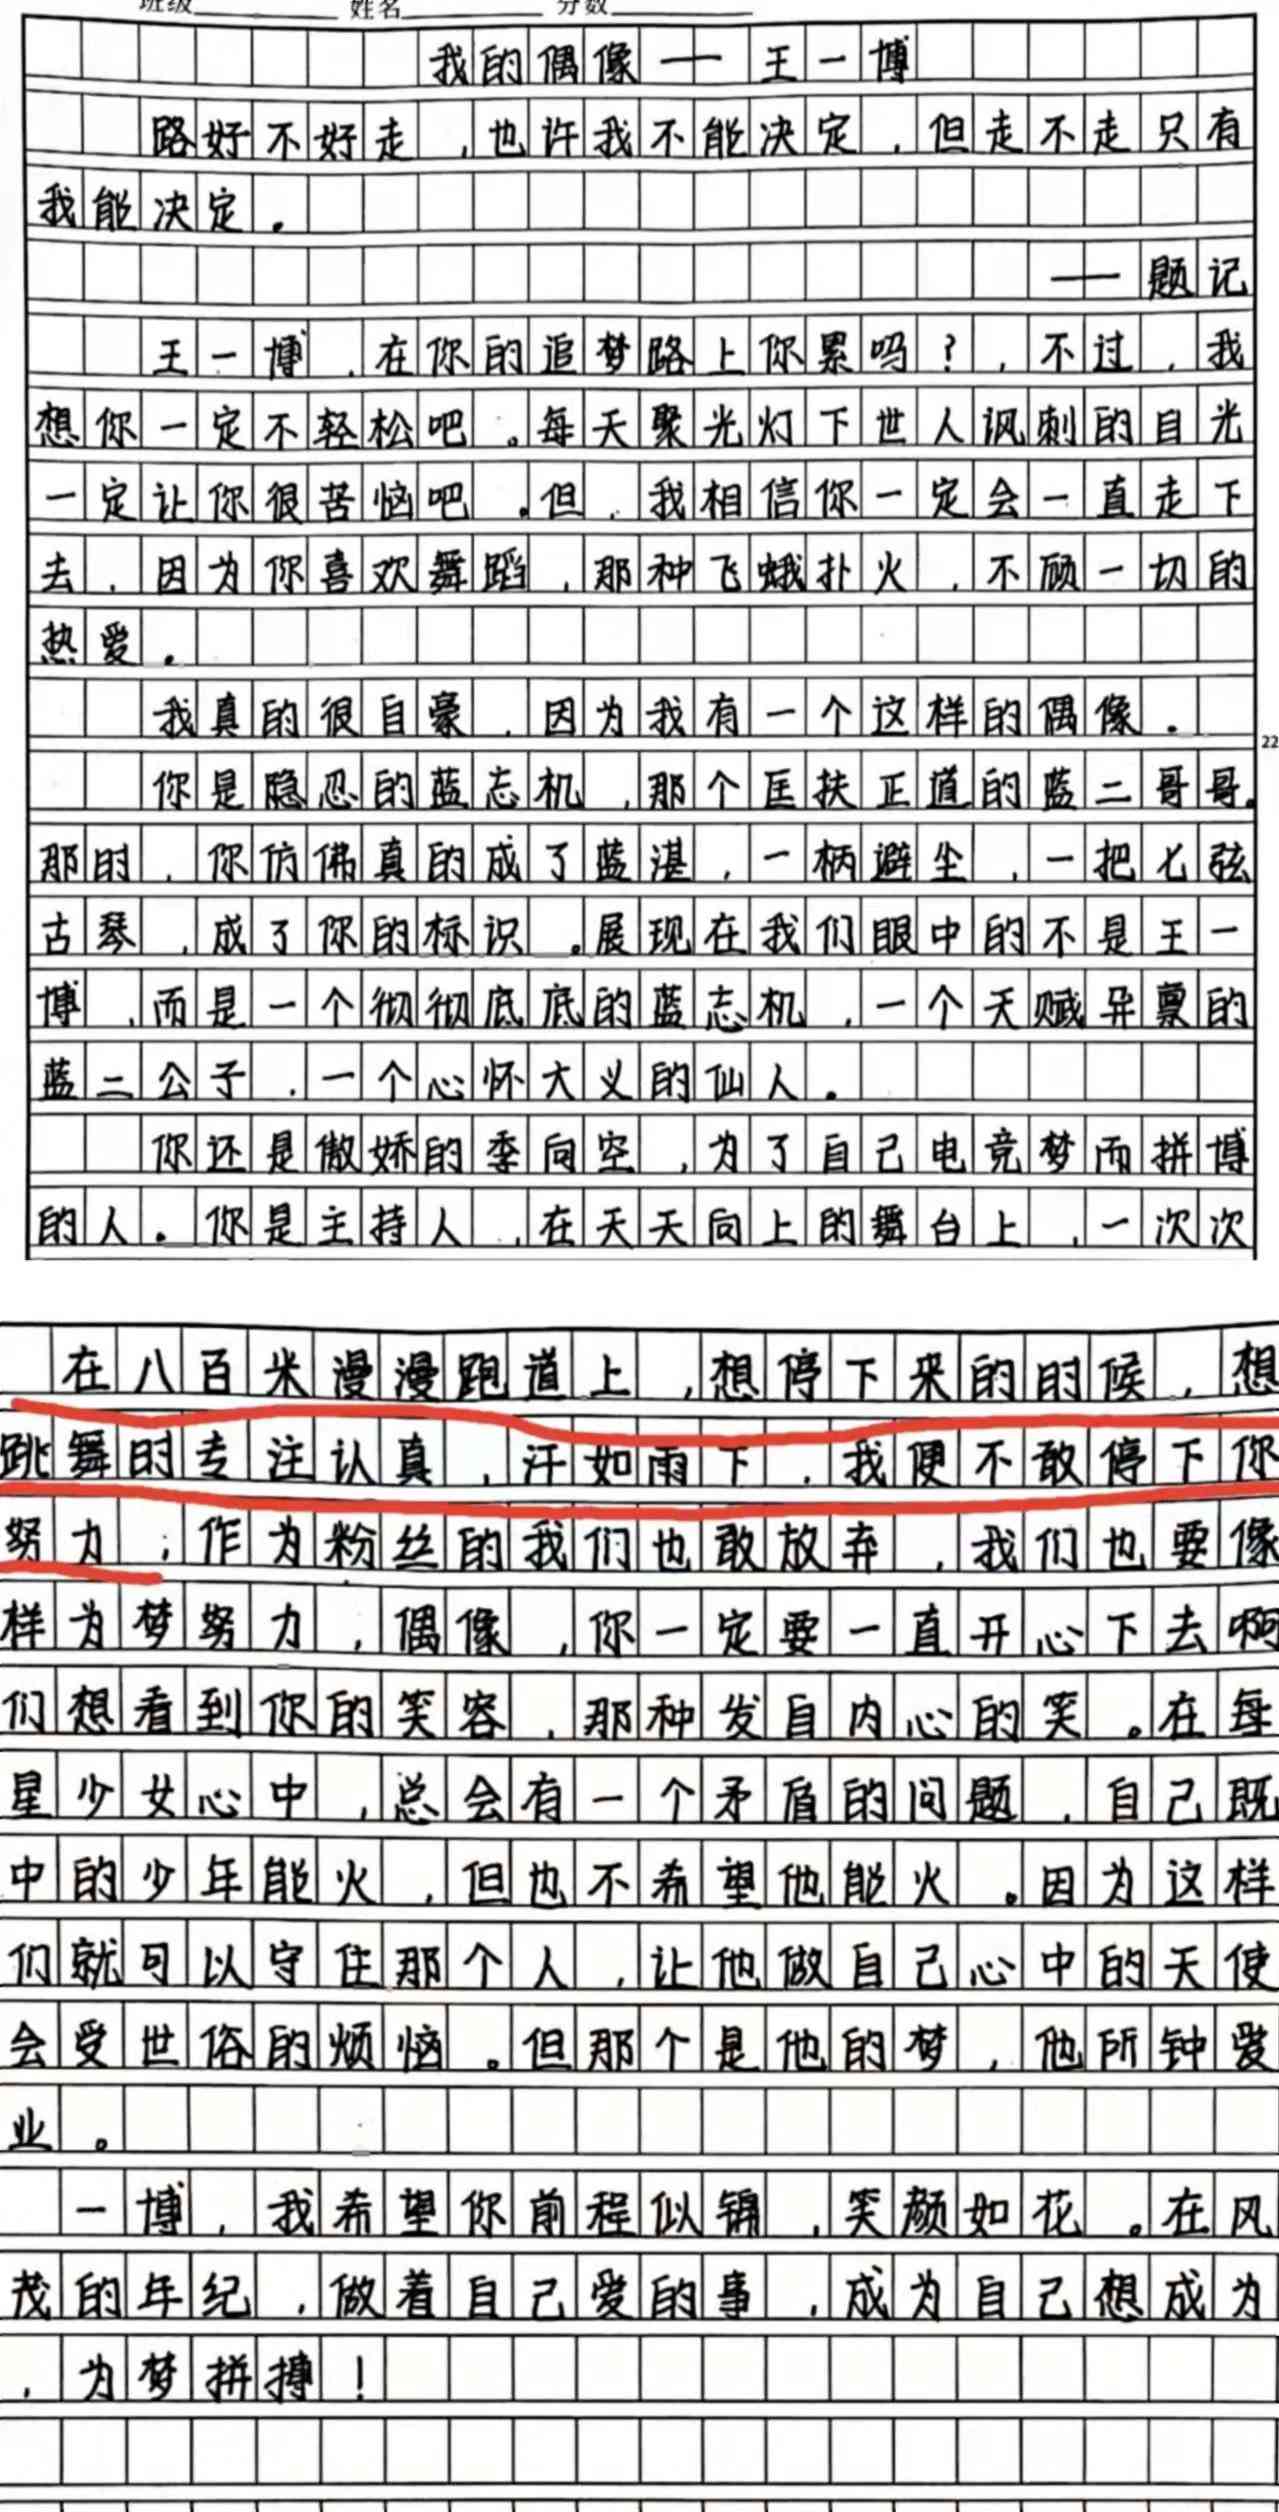 班级 姓名 分数
我的偶像——王一博
路好不好走,也许我不能决定,但走不走只有
我能决定。
——题记
王一博,在你的追梦路上你累吗?,不过,我
想你一定不轻松吧。每天聚光灯下世人讽刺的自光
一定让你很苦恼吧。但,我相信你一定会一直走下
去,因为你喜欢舞蹈,那种飞蛾扑火,不顾一切的
热爱。
我真的很自豪,因为我有一个这样的偶像。
22
你是隐忍的蓝忘机,那个匡扶正道的蓝二哥哥。
那时,你仿佛真的成了蓝湛,一柄避尘,一把七弦
古琴,成了你的标识。展现在我们眼中的不是王一
博,而是一个彻彻底底的蓝忘机,一个天赋异禀的
蓝二公子,一个心怀大义的仙人。
你还是傲娇的季向空,为了自己电竞梦而拼博
的人。你是主持人,在天天向上的舞台上,一次次
在八百米漫漫跑道上,想停下来的时候,想
跳舞时专注认真,汗如雨下,我便不敢停下你
努力;作为粉丝的我们也敢放弃,我们也要像
样为梦努力,偶像,你一定要一直开心下去啊
们想看到你的笑容,那种发自内心的笑。在每
星少女心中,总会有一个矛盾的问题,自己既
中的少年能火,但也不希望他能火。因为这样
们就可以守住那个人,让他做自己心中的天使
会受世俗的烦恼。但那个是他的梦,他所钟爱
业。
一博,我希望你前程似锦,笑颜如花。在风
茂的年纪,做着自己爱的事,成为自己想成为
,为梦拼搏!